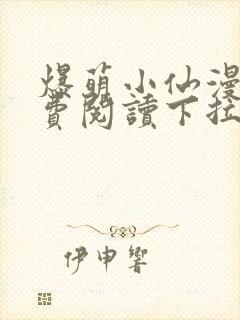 爆萌小仙漫
費閱讀下拉
伊申響